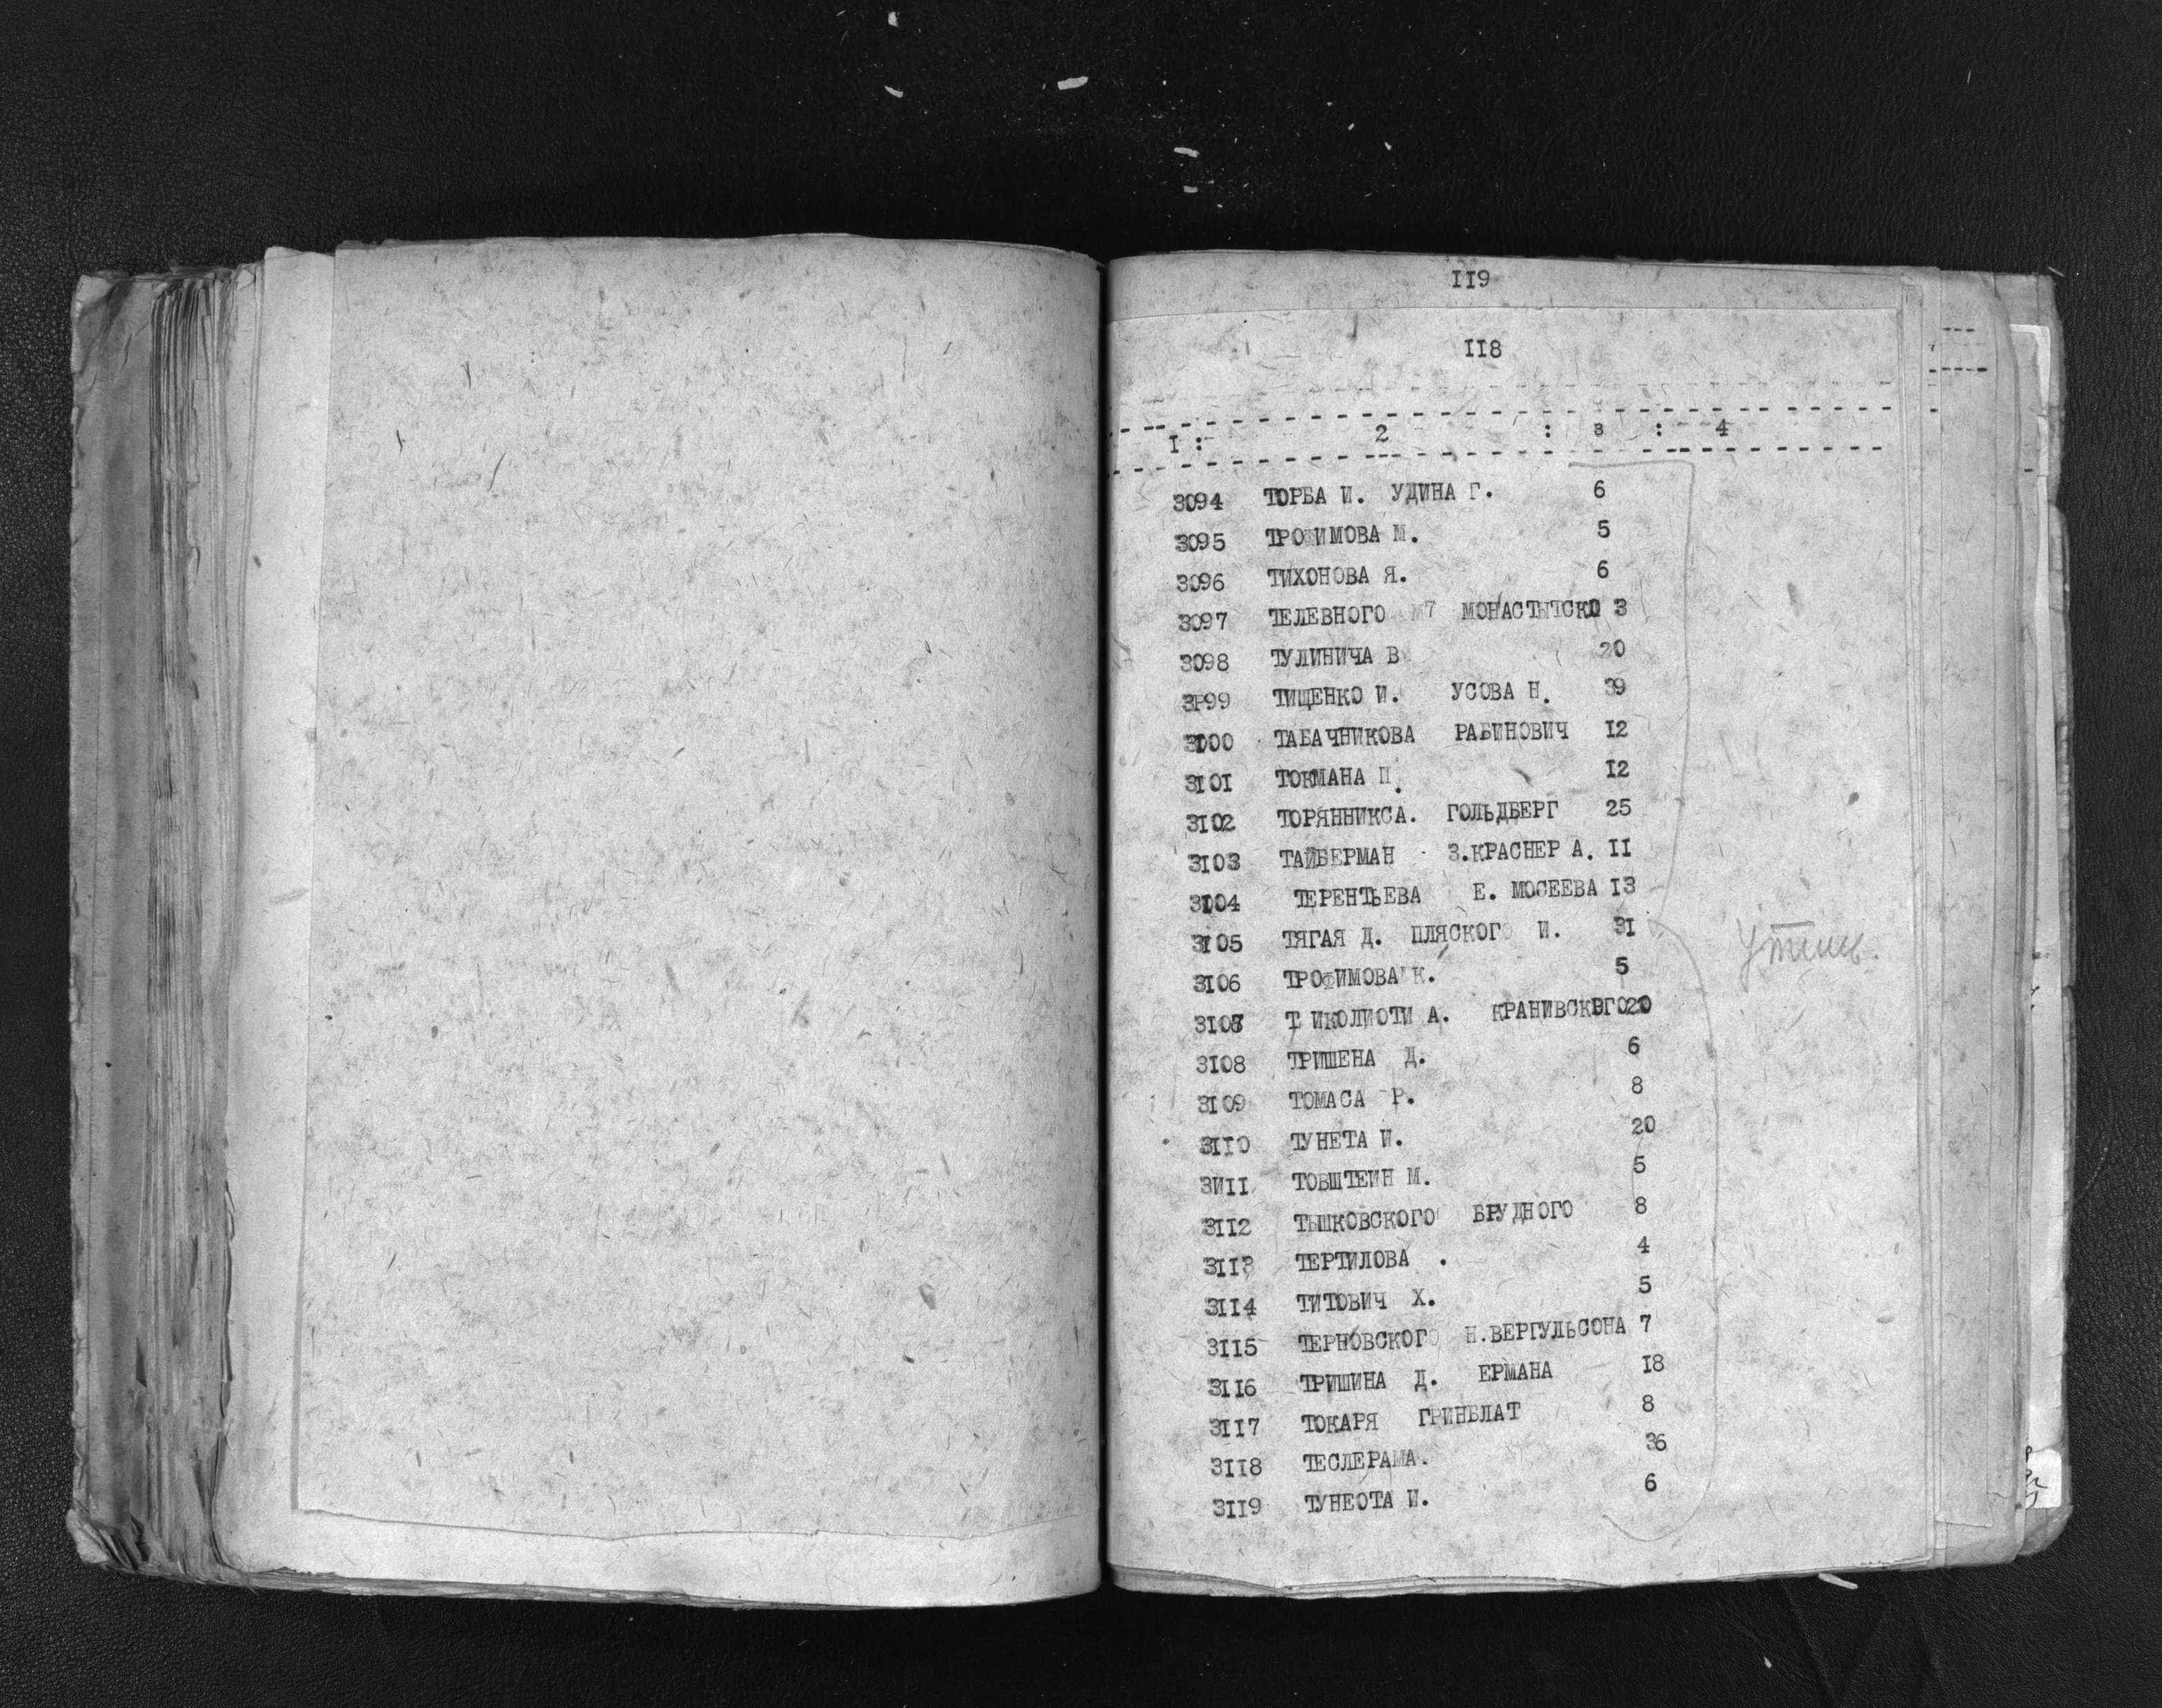 II9
II8
I : 2 : 3 : 4
3094 ТОРБА И. УДИНА Г. 6
3095 ТРОФИМОВА М. 5
3096 ТИХОНОВА Я. 6
3097 ТЕЛЕВНОГО М7 МОНАСТЫТСКО 3
3098 ТУЛИНИЧА В 20
3Р99 ТИЩЕНКО И. УСОВА Н. 39
3I00 ТАБАЧНИКОВА РАБИНОВИЧ I2
3I0I ТОКМАНА П. I2
3I02 ТОРЯННИКСА. ГОЛЬДБЕРГ 25
3I03 ТАЙБЕРМАН З.КРАСНЕР А. II
3I04 ТЕРЕНТЬЕВА Е. МОСЕЕВА I3
3I05 ТЯГАЯ Д. ПЛЯСКОГО И. 3I
3I06 ТРОФИМОВА К. 5
3I07 Т ИКОЛИОТИ А. КРАНИВСКОГО 20
3I08 ТРИШЕНА Д. 6
3I09 ТОМАСА Р. 8
3II0 ТУНЕТА И. 20
3ИII ТОВШТЕИН М. 5
3II2 ТЫШКОВСКОГО БРУДНОГО 8
3II3 ТЕРТИЛОВА . 4
3II4 ТИТОВИЧ Х. 5
3II5 ТЕРНОВСКОГО Н.ВЕРГУЛЬСОНА 7
3II6 ТРИШИНА Д. ЕРМАНА I8
3II7 ТОКАРЯ ГРИНБЛАТ 8
3II8 ТЕСЛЕРАМА. 36
3II9 ТУНЕОТА И. 6